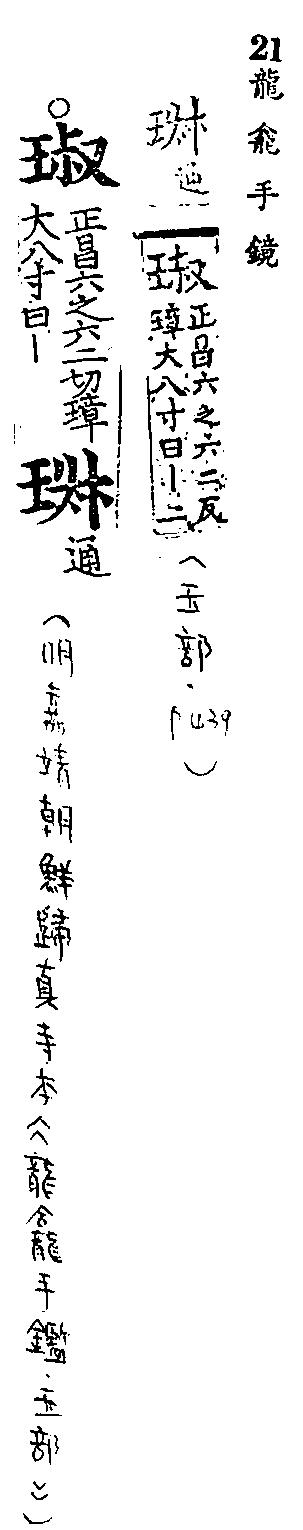 21龍龕手鏡
通
琡正昌六之六二反
璋大八寸曰丨二
(玉部.P439)
琡正昌六之六二切璋
大八寸曰丨
通
(明嘉靖朝鮮歸真寺本《龍龕手鑑.玉部》)